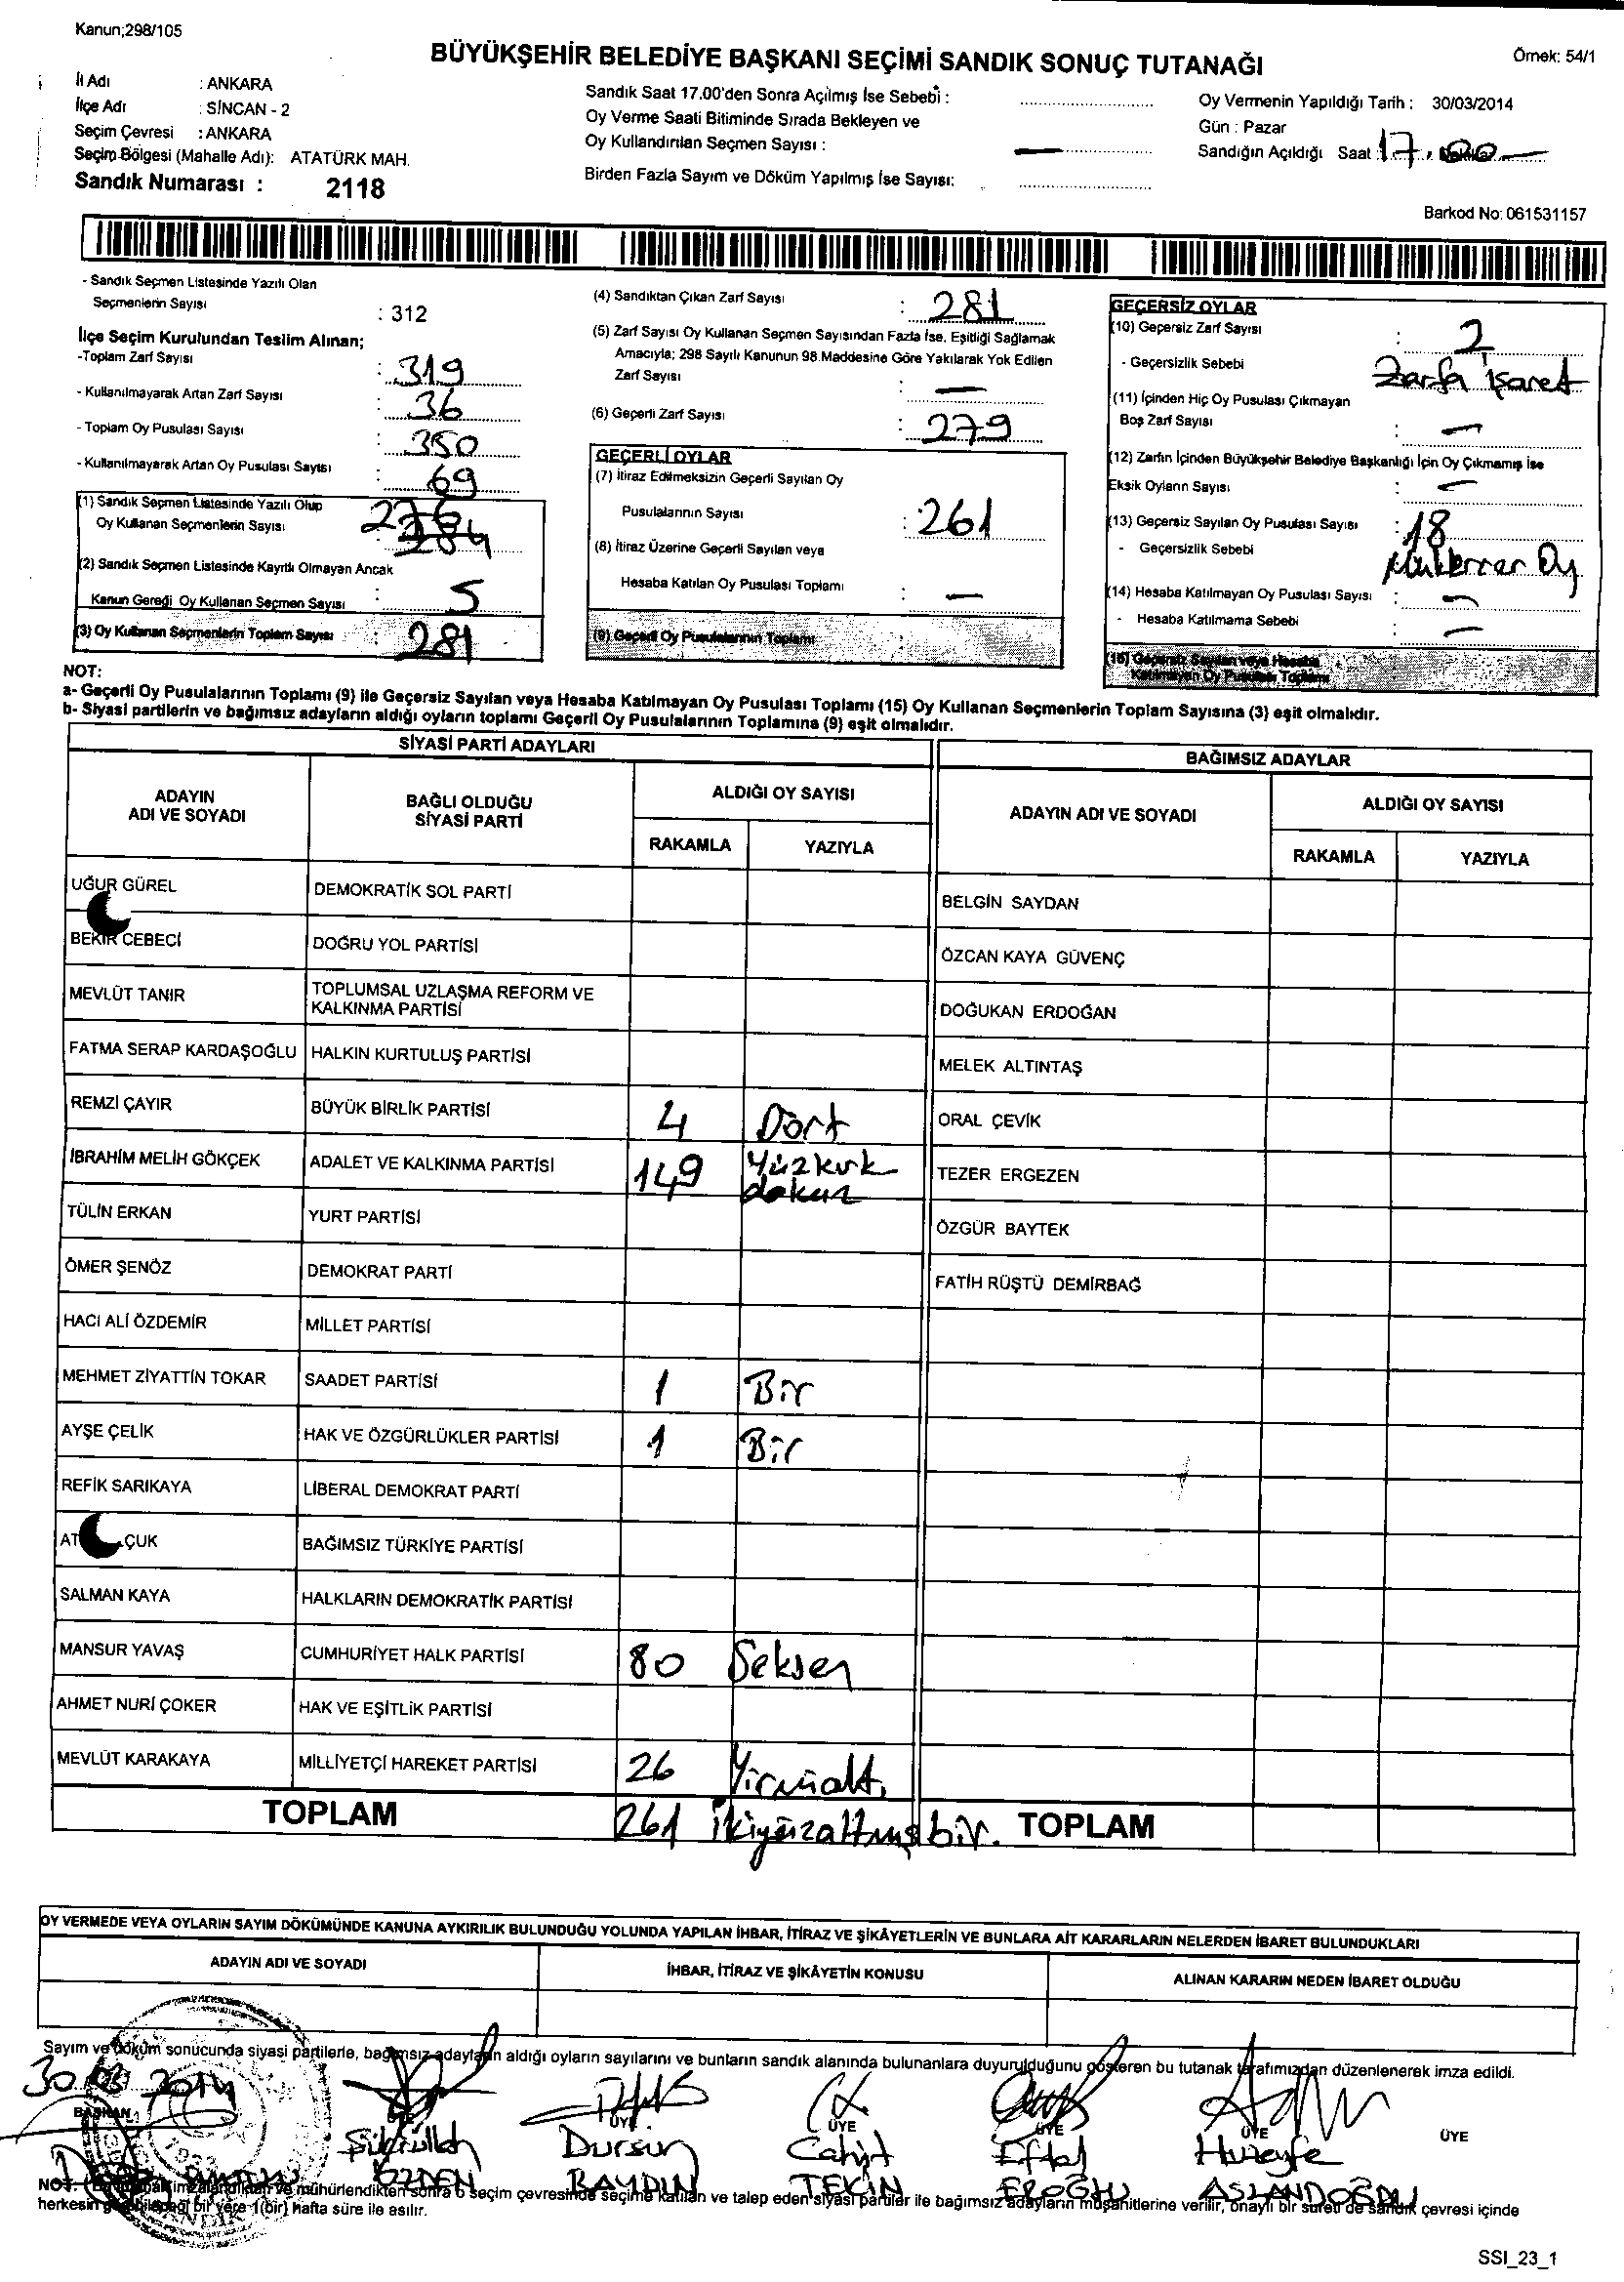 Kanun;298/105
BÜYÜKŞEHİR BELEDİYE BAŞKANI SEÇİMİ SANDIK SONUÇ TUTANAĞI
Örnek: 54/1
İl Adı : ANKARA
İlçe Adı : SİNCAN - 2
Seçim Çevresi : ANKARA
Seçim Bölgesi (Mahalle Adı): ATATÜRK MAH.
Sandık Numarası : 2118
Sandık Saat 17.00'den Sonra Açılmış İse Sebebi :
Oy Verme Saati Bitiminde Sırada Bekleyen ve
Oy Kullandırılan Seçmen Sayısı : —
Birden Fazla Sayım ve Döküm Yapılmış İse Sayısı:
Oy Vermenin Yapıldığı Tarih : 30/03/2014
Gün : Pazar
Sandığın Açıldığı Saat 17.00
Barkod No: 061531157
- Sandık Seçmen Listesinde Yazılı Olan
Seçmenlerin Sayısı : 312
İlçe Seçim Kurulundan Teslim Alınan;
-Toplam Zarf Sayısı : 319
- Kullanılmayarak Artan Zarf Sayısı : 36
- Toplam Oy Pusulası Sayısı : 350
- Kullanılmayarak Artan Oy Pusulası Sayısı : 69
(1) Sandık Seçmen Listesinde Yazılı Olup
Oy Kullanan Seçmenlerin Sayısı 276
284
(2) Sandık Seçmen Listesinde Kayıtlı Olmayan Ancak
Kanun Gereği Oy Kullanan Seçmen Sayısı : 5
(3) Oy Kullanan Seçmenlerin Toplam Sayısı : 281
(4) Sandıktan Çıkan Zarf Sayısı : 281
(5) Zarf Sayısı Oy Kullanan Seçmen Sayısından Fazla İse, Eşitliği Sağlamak
Amacıyla; 298 Sayılı Kanunun 98.Maddesine Göre Yakılarak Yok Edilen
Zarf Sayısı : —
(6) Geçerli Zarf Sayısı : 279
GEÇERLİ OYLAR
(7) İtiraz Edilmeksizin Geçerli Sayılan Oy
Pusulalarının Sayısı : 261
(8) İtiraz Üzerine Geçerli Sayılan veya
Hesaba Katılan Oy Pusulası Toplamı : —
(9) Geçerli Oy Pusulalarının Toplamı :
GEÇERSİZ OYLAR
(10) Geçersiz Zarf Sayısı : 2
- Geçersizlik Sebebi Zarfa işaret
(11) İçinden Hiç Oy Pusulası Çıkmayan
Boş Zarf Sayısı : —
(12) Zarfın İçinden Büyükşehir Belediye Başkanlığı İçin Oy Çıkmamış İse
Eksik Oyların Sayısı : —
(13) Geçersiz Sayılan Oy Pusulası Sayısı : 18
- Geçersizlik Sebebi Mükerrer Oy
(14) Hesaba Katılmayan Oy Pusulası Sayısı : —
- Hesaba Katılmama Sebebi : —
(15) Geçersiz Sayılan veya Hesaba
Katılmayan Oy Pusulası Toplamı
NOT:
a- Geçerli Oy Pusulalarının Toplamı (9) ile Geçersiz Sayılan veya Hesaba Katılmayan Oy Pusulası Toplamı (15) Oy Kullanan Seçmenlerin Toplam Sayısına (3) eşit olmalıdır.
b- Siyasi partilerin ve bağımsız adayların aldığı oyların toplamı Geçerli Oy Pusulalarının Toplamına (9) eşit olmalıdır.
SİYASİ PARTİ ADAYLARI
ADAYIN
ADI VE SOYADI
BAĞLI OLDUĞU
SİYASİ PARTİ
ALDIĞI OY SAYISI
RAKAMLA YAZIYLA
UĞUR GÜREL DEMOKRATİK SOL PARTİ
BEKİR CEBECİ DOĞRU YOL PARTİSİ
MEVLÜT TANIR TOPLUMSAL UZLAŞMA REFORM VE
KALKINMA PARTİSİ
FATMA SERAP KARDAŞOĞLU HALKIN KURTULUŞ PARTİSİ
REMZİ ÇAYIR BÜYÜK BİRLİK PARTİSİ 4 Dört
İBRAHİM MELİH GÖKÇEK ADALET VE KALKINMA PARTİSİ 149 Yüzkırk
dokuz
TÜLİN ERKAN YURT PARTİSİ
ÖMER ŞENÖZ DEMOKRAT PARTİ
HACI ALİ ÖZDEMİR MİLLET PARTİSİ
MEHMET ZİYATTİN TOKAR SAADET PARTİSİ 1 Bir
AYŞE ÇELİK HAK VE ÖZGÜRLÜKLER PARTİSİ 1 Bir
REFİK SARIKAYA LİBERAL DEMOKRAT PARTİ
AT ÇUK BAĞIMSIZ TÜRKİYE PARTİSİ
SALMAN KAYA HALKLARIN DEMOKRATİK PARTİSİ
MANSUR YAVAŞ CUMHURİYET HALK PARTİSİ 80 Seksen
AHMET NURİ ÇOKER HAK VE EŞİTLİK PARTİSİ
MEVLÜT KARAKAYA MİLLİYETÇİ HAREKET PARTİSİ 26 Yirmialtı
TOPLAM 261 ikiyüzaltmışbir.
BAĞIMSIZ ADAYLAR
ADAYIN ADI VE SOYADI
ALDIĞI OY SAYISI
RAKAMLA YAZIYLA
BELGİN SAYDAN
ÖZCAN KAYA GÜVENÇ
DOĞUKAN ERDOĞAN
MELEK ALTINTAŞ
ORAL ÇEVİK
TEZER ERGEZEN
ÖZGÜR BAYTEK
FATİH RÜŞTÜ DEMİRBAĞ
TOPLAM
OY VERMEDE VEYA OYLARIN SAYIM DÖKÜMÜNDE KANUNA AYKIRILIK BULUNDUĞU YOLUNDA YAPILAN İHBAR, İTİRAZ VE ŞİKÂYETLERİN VE BUNLARA AİT KARARLARIN NELERDEN İBARET BULUNDUKLARI
ADAYIN ADI VE SOYADI İHBAR, İTİRAZ VE ŞİKÂYETİN KONUSU ALINAN KARARIN NEDEN İBARET OLDUĞU
Sayım ve döküm sonucunda siyasi partilerle, bağımsız adayların aldığı oyların sayılarını ve bunların sandık alanında bulunanlara duyurulduğunu gösteren bu tutanak tarafımızdan düzenlenerek imza edildi.
30.03.2014
BAŞKAN ÜYE ÜYE ÜYE ÜYE ÜYE ÜYE
Şükrullah Dursun Cahit Eftal Huzeyfe
ÖZDEN BAYDIN TEKİN EROĞLU ASLANDOĞDU
NOT: Bu tutanak imzalandıktan ve mühürlendikten sonra o seçim çevresinde seçime katılan ve talep eden siyasi partiler ile bağımsız adayların müşahitlerine verilir, onaylı bir sureti de sandık çevresi içinde
herkesin görebileceği bir yere 1(bir) hafta süre ile asılır.
SSI_23_1